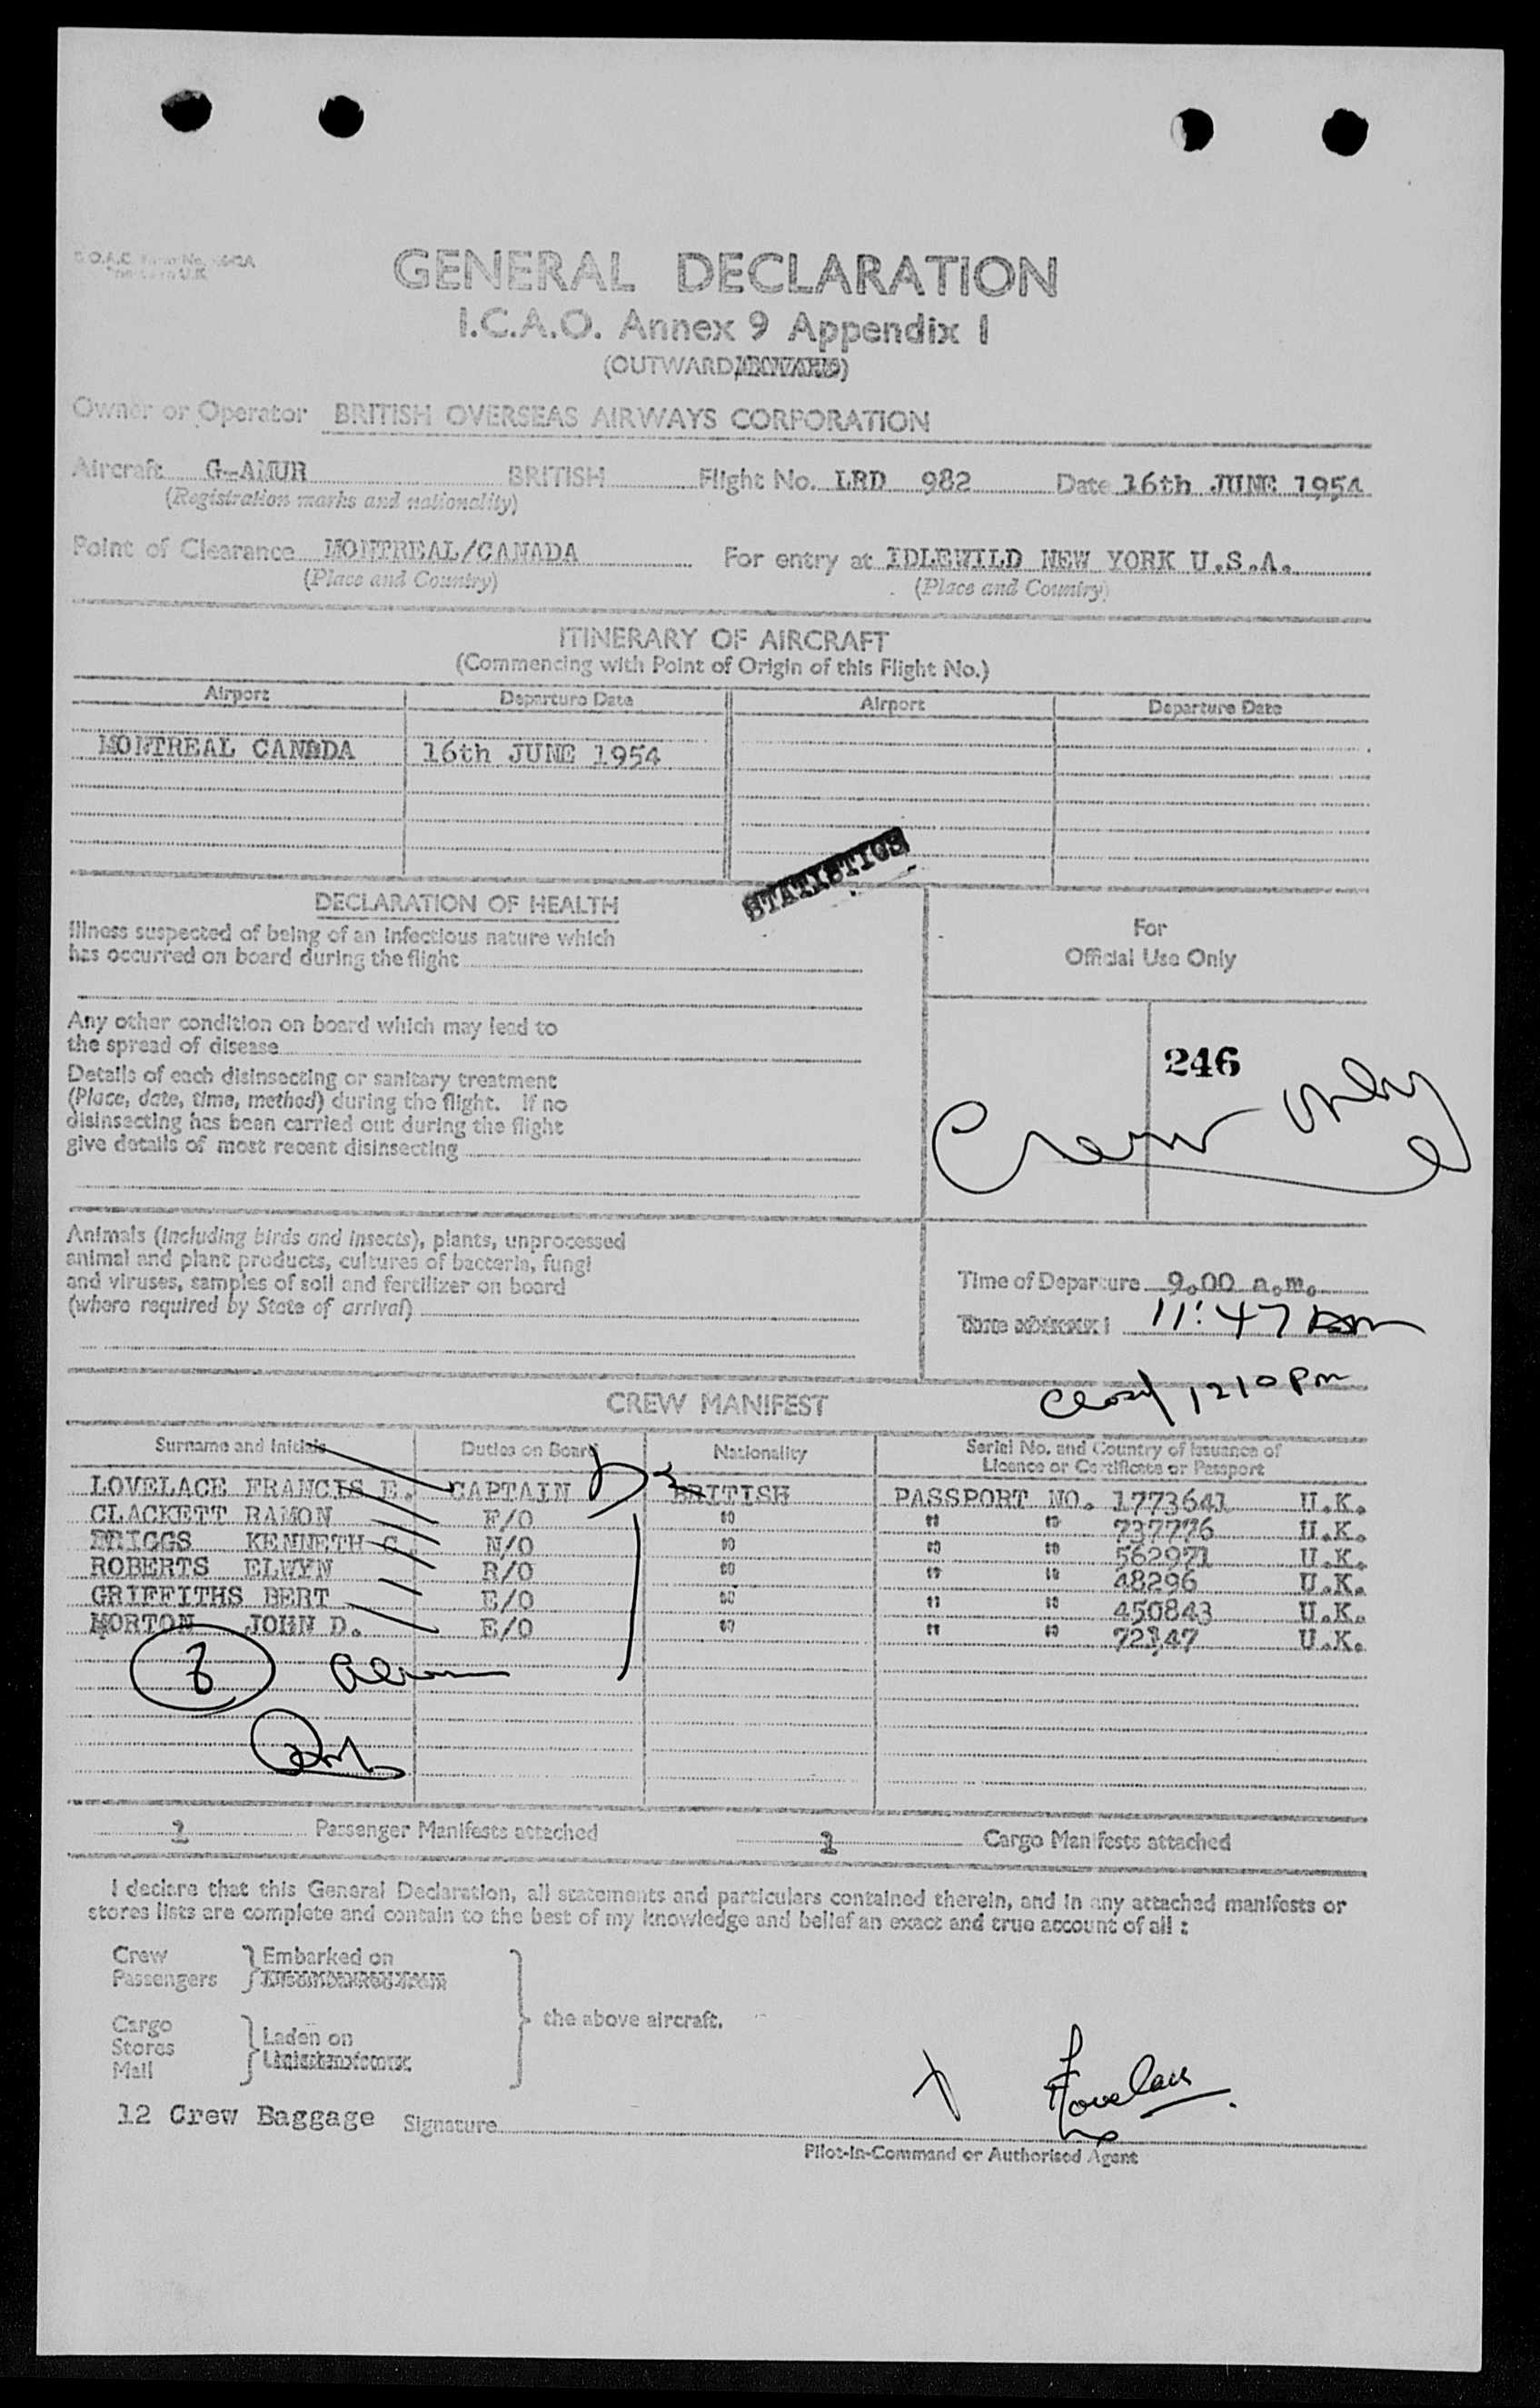 GENERAL DECLARATION
I.C.A.O. Annex 9 Appendix I
(OUTWARD
Owner or Operator BRITISH OVERSEAS AIRWAYS CORPORATION
Aircraft G-AMUR BRITISH Flight No. LRD 982 Date 16th JUNE 1954
(Registration marks and nationality)
Point of Clearance MONTREAL/CANADA For entry at IDLEWILD NEW YORK U.S.A.
(Place and Country) (Place and Country)
ITINERARY OF AIRCRAFT
(Commencing with Point of Origin of this Flight No.)
Airport Departure Date Airport Departure Date
MONTREAL CANADA 16th JUNE 1954
STATISTICS
DECLARATION OF HEALTH
Illness suspected of being of an infectious nature which
has occurred on board during the flight
Any other condition on board which may lead to
the spread of disease
Details of each disinsecting or sanitary treatment
(Place, date, time, method) during the flight. If no
disinsecting has been carried out during the flight
give details of most recent disinsecting
For
Official Use Only
246
Crew only
Animals (including birds and insects), plants, unprocessed
animal and plant products, cultures of bacteria, fungi
and viruses, samples of soil and fertilizer on board
(where required by State of arrival)
Time of Departure 9.00 a.m.
11:47
Closed 1210 Pm
CREW MANIFEST
Surname and Initials Duties on Board Nationality Serial No. and Country of Issuance of
Licence or Certificate or Passport
LOVELACE FRANCIS E. CAPTAIN BRITISH PASSPORT NO. 1773641 U.K.
CLACKETT RAMON F/O " " " 737776 U.K.
BRIGGS KENNETH C. N/O " " " 562971 U.K.
ROBERTS ELWYN R/O " " " 48296 U.K.
GRIFFITHS BERT E/O " " " 450843 U.K.
MORTON JOHN D. E/O " " " 72147 U.K.
1 Passenger Manifests attached 1 Cargo Manifests attached
I declare that this General Declaration, all statements and particulars contained therein, and in any attached manifests or
stores lists are complete and contain to the best of my knowledge and belief an exact and true account of all :
Crew
Passengers
Embarked on
Cargo
Stores
Mail
Laden on
the above aircraft.
12 Crew Baggage Signature
Lovelace
Pilot-in-Command or Authorised Agent